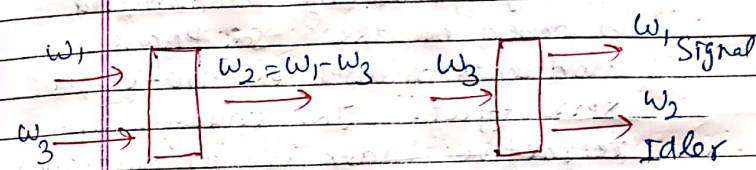 ω₁ ω₂ = ω₁ - ω₃ ω₃ ω₁ Signal
ω₃ ω₂
Idler